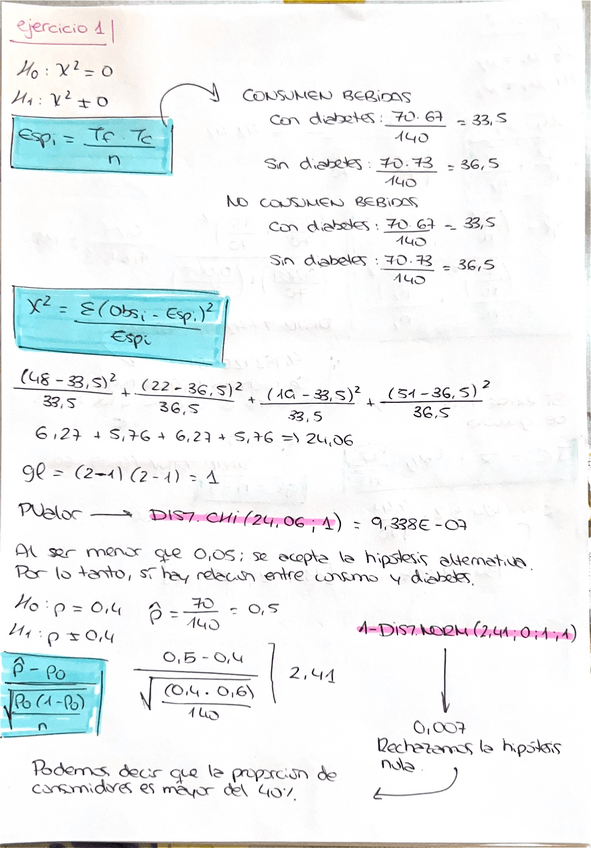 ejercicio 1
H₀: χ² = 0
H₁: χ² ≠ 0
Espᵢ = Tf · Tc / n
CONSUMEN BEBIDAS
Con diabetes: 70·67 / 140 = 33,5
Sin diabetes: 70·73 / 140 = 36,5
NO CONSUMEN BEBIDAS
Con diabetes: 70·67 / 140 = 33,5
Sin diabetes: 70·73 / 140 = 36,5
χ² = Σ(Obsᵢ - Espᵢ)² / Espᵢ
(48 - 33,5)² / 33,5 + (22 - 36,5)² / 36,5 + (19 - 33,5)² / 33,5 + (51 - 36,5)² / 36,5
6,27 + 5,76 + 6,27 + 5,76 => 24,06
gl = (2-1) (2-1) = 1
PValor → DIST.CHI(24,06;1) = 9,338E-07
Al ser menor que 0,05; se acepta la hipótesis alternativa.
Por lo tanto, sí hay relación entre consumo y diabetes.
H₀: p = 0,4
H₁: p ≠ 0,4
p̂ = 70 / 140 = 0,5
p̂ - p₀ / √(p₀(1-p₀) / n)
0,5 - 0,4 / √((0,4 · 0,6) / 140) } 2,41
1-DIST.NORM(2,41;0;1;1)
0,007
Rechazamos la hipótesis
nula.
Podemos decir que la proporción de
consumidores es mayor del 40%.